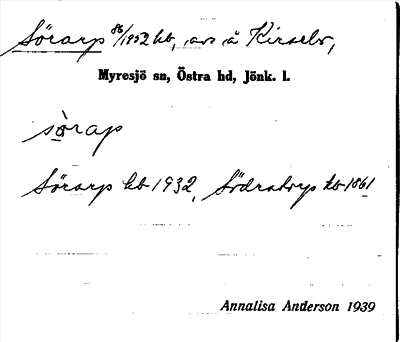 Sörarp 86/1952 hb, avs å Kirselv,
Myresjö sn, Östra hd, Jönk. l.
sòrap
Sörarp kb 1932, Södratorp kb 1861
Annalisa Anderson 1939